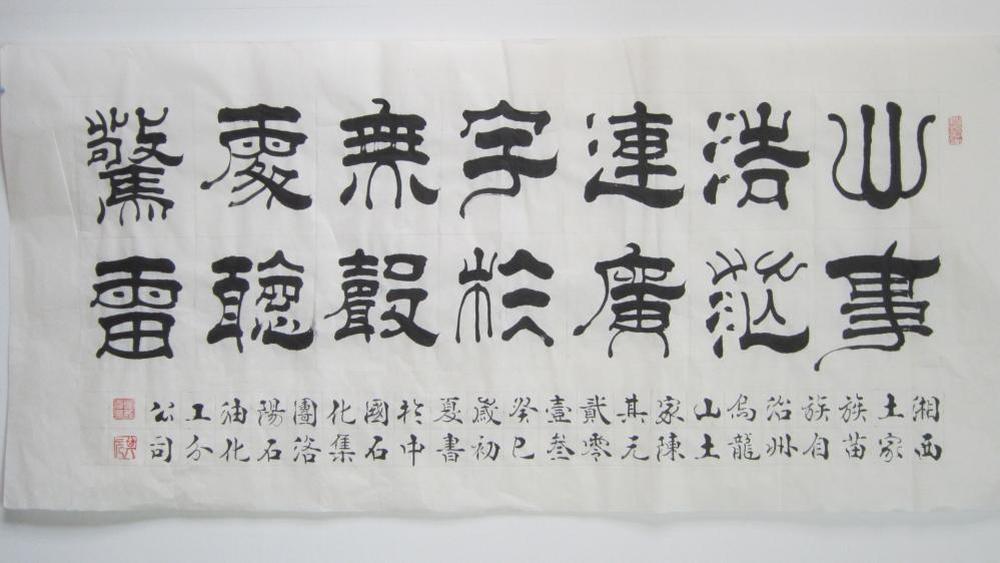 心事
浩茫
連廣
宇於
無聲
處聽
驚雷
湘西
土家
族苗
族自
治州
烏龍
山土
家陳
其元
貳零
壹叁
癸巳
歲初
夏書
於中
國石
化集
團洛
陽石
油化
工分
公司